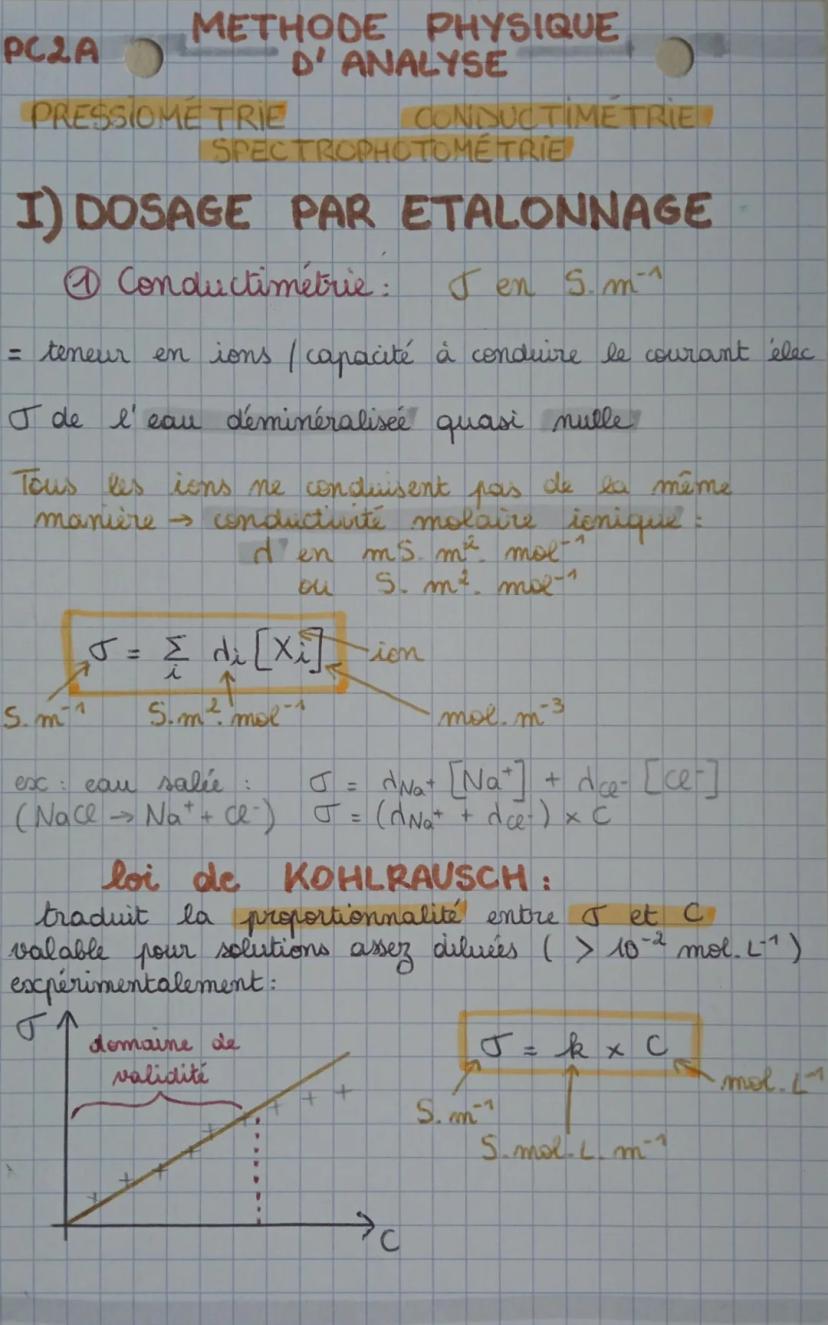 PC2A
METHODE PHYSIQUE
D'ANALYSE
PRESSIOMÉTRIE CONDUCTIMÉTRIE
SPECTROPHOTOMÉTRIE
I) DOSAGE PAR ETALONNAGE
① Conductimétrie : σ en S.m⁻¹
= teneur en ions / capacité à conduire le courant élec
σ de l'eau déminéralisée quasi nulle
Tous les ions ne conduisent pas de la même
manière → conductivité molaire ionique :
λ en mS. m². mol⁻¹
ou S. m². mol⁻¹
σ = Σ λi [Xi] ion
i
S.m⁻¹ S.m².mol⁻¹ mol.m⁻³
ex : eau salée : σ = λNa⁺ [Na⁺] + λCl⁻ [Cl⁻]
(NaCl → Na⁺ + Cl⁻) σ = (λNa⁺ + λCl⁻) × C
loi de KOHLRAUSCH :
traduit la proportionnalité entre σ et C
valable pour solutions assez diluées ( > 10⁻² mol.L⁻¹)
expérimentalement :
σ
domaine de
validité
C
σ = k × C
mol.L⁻¹
S.m⁻¹
S.mol.L.m⁻¹